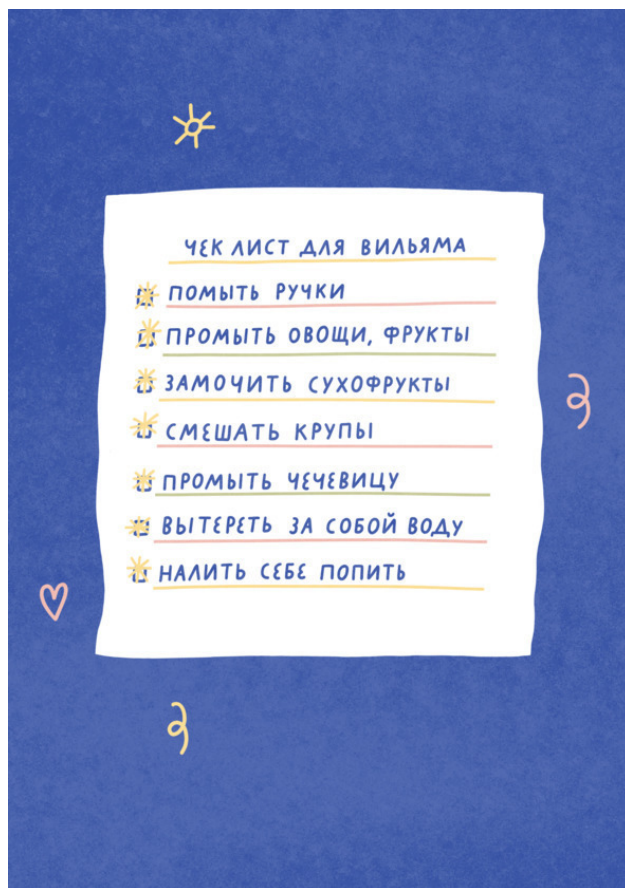 ЧЕК ЛИСТ ДЛЯ ВИЛЬЯМА
ПОМЫТЬ РУЧКИ
ПРОМЫТЬ ОВОЩИ, ФРУКТЫ
ЗАМОЧИТЬ СУХОФРУКТЫ
СМЕШАТЬ КРУПЫ
ПРОМЫТЬ ЧЕЧЕВИЦУ
ВЫТЕРЕТЬ ЗА СОБОЙ ВОДУ
НАЛИТЬ СЕБЕ ПОПИТЬ